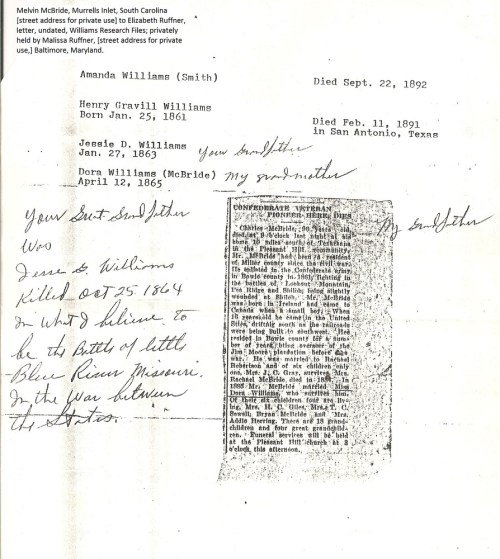 Melvin McBride, Murrells Inlet, South Carolina
[street address for private use] to Elizabeth Ruffner,
letter, undated, Williams Research Files; privately
held by Malissa Ruffner, [street address for private
use,] Baltimore, Maryland.
Amanda Williams (Smith)
Died Sept. 22, 1892
Henry Gravill Williams
Born Jan. 25, 1861
Died Feb. 11, 1891
in San Antonio, Texas
Jessie D. Williams
Jan. 27, 1863
Your Grandfather
Dora Williams (McBride)
April 12, 1865
My grandmother
Your Great Grandfather
Was
Jesse G. Williams
Killed Oct 25 1864
In what I believe to
be the Battle of little
Blue River Missouri.
In the War between
the States.
My Grandfather
CONFEDERATE VETERAN
PIONEER HERE, DIES
Charles McBride, 90 years old,
died at 9 o'clock last night at his
home 10 miles south of Texarkana
in the Pleasant Hill community.
Mr. McBride had been a resident
of Miller county since the civil war.
He enlisted in the Confederate army
in Bowie county in 1861, fighting in
the battles of Lookout Mountain,
Pea Ridge and Shiloh, being slightly
wounded at Shiloh. Mr. McBride
was born in Ireland and came to
Canada when a small boy. When
16 years old he came to the United
States, drifting south as the railroads
were being built to southwest. He
resided in Bowie county for a num-
ber of years, being overseer of the
Jim Moore plantation before the
war. He was married to Rachael
Robertson and of six children only
one, Mrs. J. C. Gray, survives. Mrs.
Rachael McBride died in 1884. In
1885 Mr. McBride married Miss
Dora Williams, who survives him.
Of their six children four are liv-
ing, Mrs. H. C. Giles, Mrs. T. C.
Sewell, Bryan McBride and Mrs.
Addie Herring. There are 18 grand-
children and four great grandchild-
ren. Funeral services will be held
at the Pleasant Hill church at 3
o'clock this afternoon.